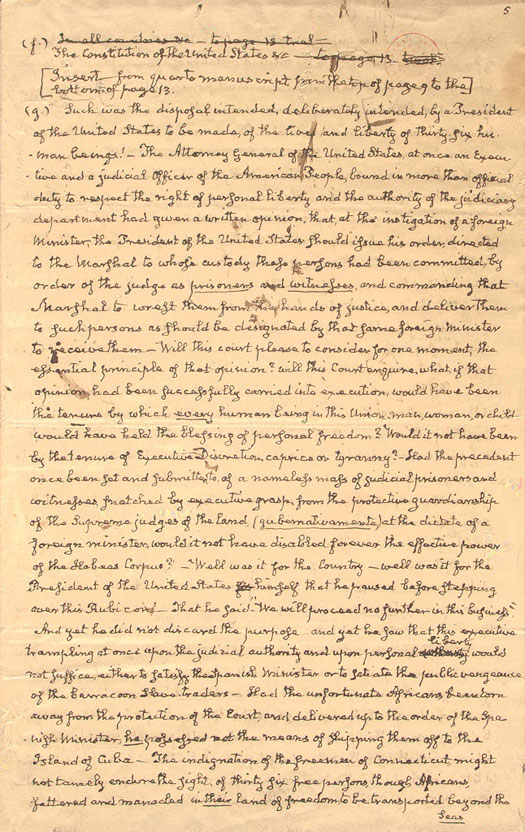 5
(f.) In all countries &c — to page 12 trial —
The Constitution of the United States &c — to page 13.
[Insert from quarto manuscript from the top of page 9 to the
bottom of page 13.
(g.) Such was the disposal intended, deliberately intended, by a President
of the United States to be made, of the lives and liberty of thirty six hu-
man beings! — The Attorney General of the United States, at once an Execu-
tive and a judicial officer of the American People, bound in more than official
duty to respect the right of personal liberty and the authority of the judiciary
department had given a written opinion, that, at the instigation of a foreign
Minister, the President of the United States should issue his order, directed
to the Marshal to whose custody these persons had been committed, by
order of the judge as prisoners and witnesses, and commanding that
Marshal to wrest them from the hands of justice, and deliver them
to such persons as should be designated by that same foreign minister
to receive them — Will this court please to consider for one moment, the
essential principle of that opinion? will this Court enquire, what, if that
opinion had been successfully carried into execution, would have been
the tenure by which every human being in this Union, man, woman, or child
would have held the blessing of personal freedom? Would it not have been
by the tenure of Executive Discretion, caprice or tyranny? — Had the precedent
once been set and submitted to, of a nameless mass of judicial prisoners and
witnesses, snatched by executive grasp, from the protective guardianship
of the Supreme judges of the land, (gubernativamente) at the dictate of a
foreign minister, would it not have disabled forever the effective power
of the Habeas Corpus? — Well was it for the Country — well was it for the
President of the United States himself that he paused before stepping
over this Rubicon! — That he said "We will proceed no further in this business"
And yet he did not discard the purpose — and yet he saw that this executive
trampling at once upon the judicial authority and upon personal liberty would
not suffice, either to satisfy the Spanish Minister or to satiate the public vengeance
of the Barracoon Slave-traders — Had the unfortunate Africans been torn
away from the protection of the Court, and delivered up to the order of the Spa-
nish Minister, he possessed not the means of shipping them off to the
Island of Cuba — The indignation of the freemen of Connecticut, might
not tamely endure the sight, of thirty six free persons, though Africans,
fettered and manacled in their land of freedom to be transported beyond the
Seas